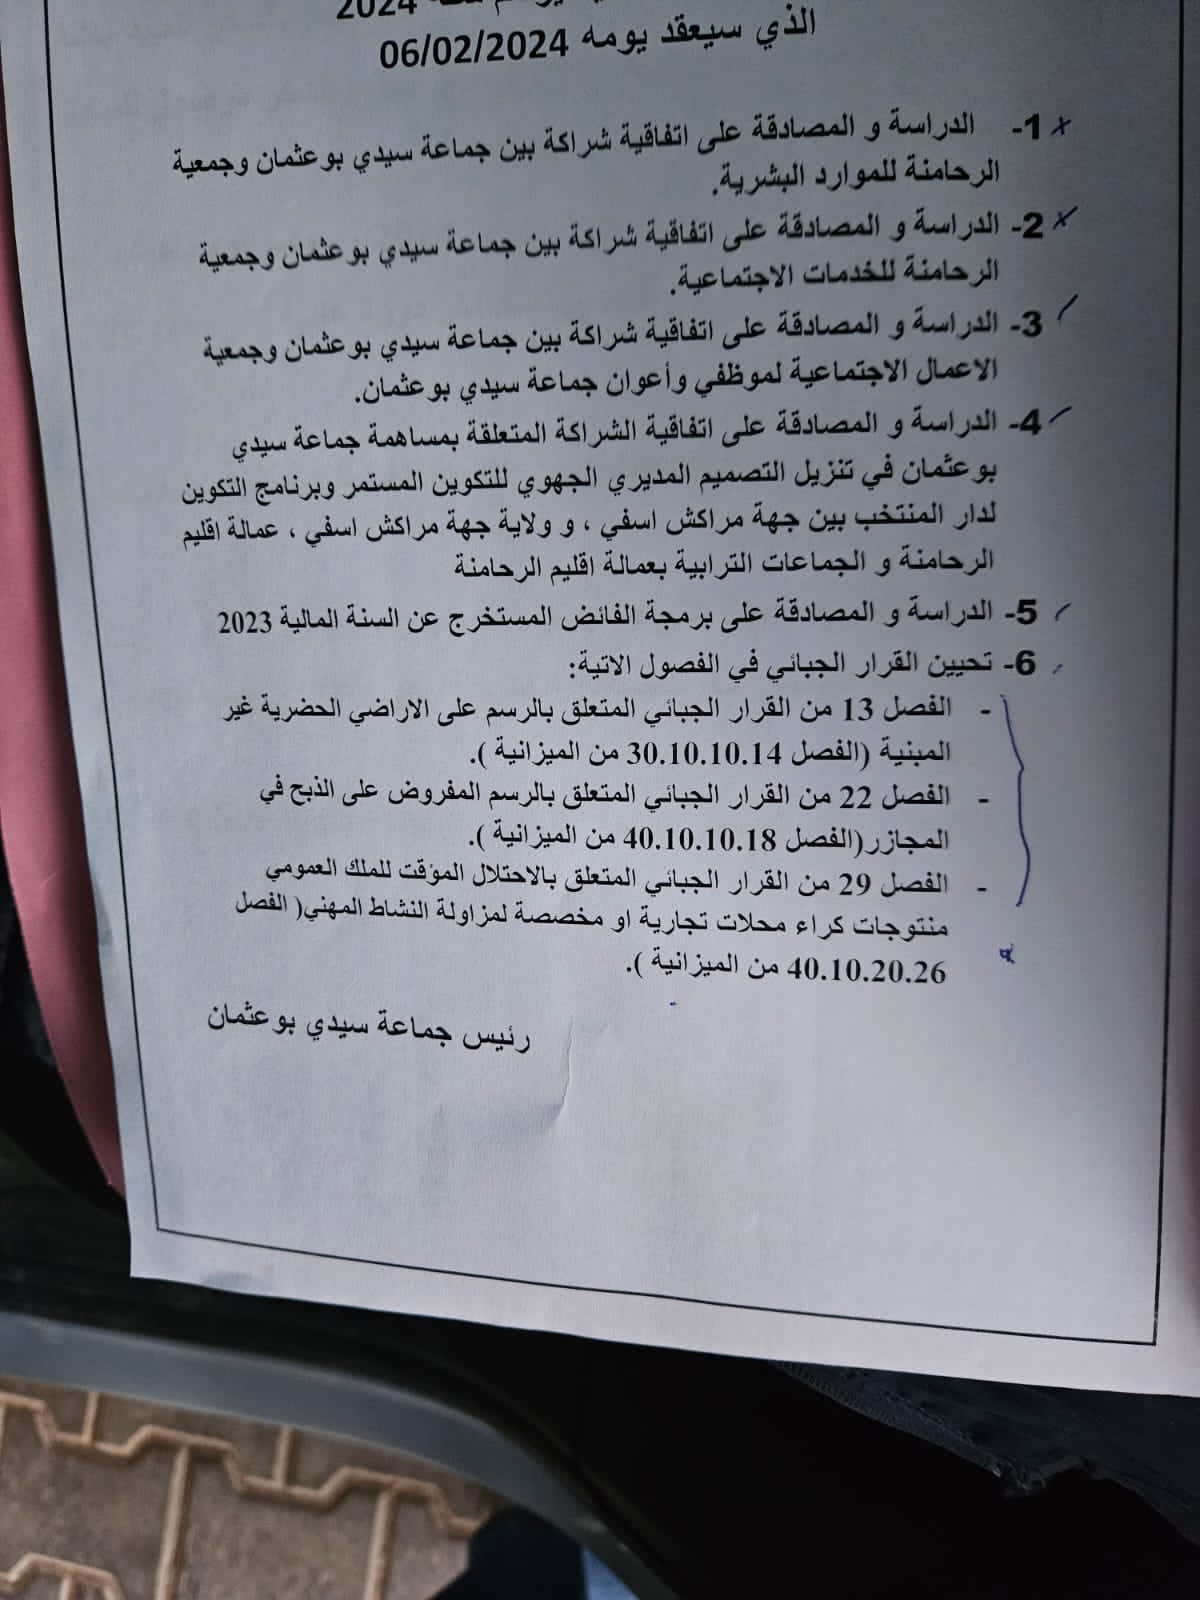 2024
الذي سيعقد يومه 06/02/2024
1- الدراسة و المصادقة على اتفاقية شراكة بين جماعة سيدي بوعثمان وجمعية
الرحامنة للموارد البشرية.
2- الدراسة و المصادقة على اتفاقية شراكة بين جماعة سيدي بوعثمان وجمعية
الرحامنة للخدمات الاجتماعية.
3- الدراسة و المصادقة على اتفاقية شراكة بين جماعة سيدي بوعثمان وجمعية
الاعمال الاجتماعية لموظفي وأعوان جماعة سيدي بوعثمان.
4- الدراسة و المصادقة على اتفاقية الشراكة المتعلقة بمساهمة جماعة سيدي
بوعثمان في تنزيل التصميم المديري الجهوي للتكوين المستمر وبرنامج التكوين
لدار المنتخب بين جهة مراكش اسفي ، و ولاية جهة مراكش اسفي ، عمالة اقليم
الرحامنة و الجماعات الترابية بعمالة اقليم الرحامنة
5- الدراسة و المصادقة على برمجة الفائض المستخرج عن السنة المالية 2023
6- تحيين القرار الجبائي في الفصول الاتية:
- الفصل 13 من القرار الجبائي المتعلق بالرسم على الاراضي الحضرية غير
المبنية (الفصل 30.10.10.14 من الميزانية ).
- الفصل 22 من القرار الجبائي المتعلق بالرسم المفروض على الذبح في
المجازر(الفصل 40.10.10.18 من الميزانية ).
- الفصل 29 من القرار الجبائي المتعلق بالاحتلال المؤقت للملك العمومي
منتوجات كراء محلات تجارية او مخصصة لمزاولة النشاط المهني( الفصل
40.10.20.26 من الميزانية ).
رئيس جماعة سيدي بوعثمان